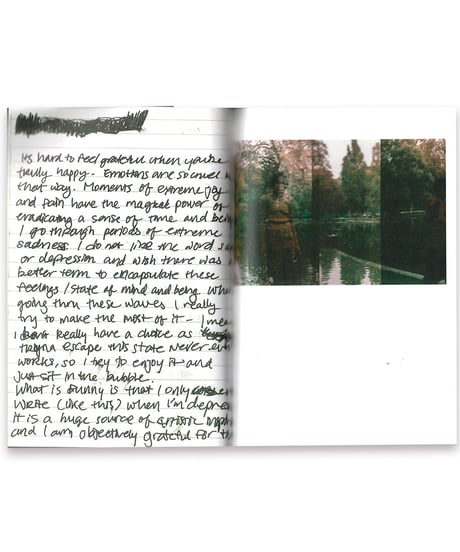 Its hard to feel grateful when you're
trully happy - Emotions are so cruel
that way. Moments of extreme joy
and pain have the magical power of
eradicating a sense of time and bein
I go through periods of extreme
sadness I do not like the word s
or depression and wish there was a
better term to encapsulate these
feelings / state of mind and being. Whe
going thru these waves I really
try to make the most of it - I mea
I dont Really have a choice as
tryna escape this state never eve
works, so I try to enjoy it and
just sit in the bubble.
What is funny is that I only
write (like this) when I'm depre
it is a huge source of artistic inspi
and I am objectively grateful for th